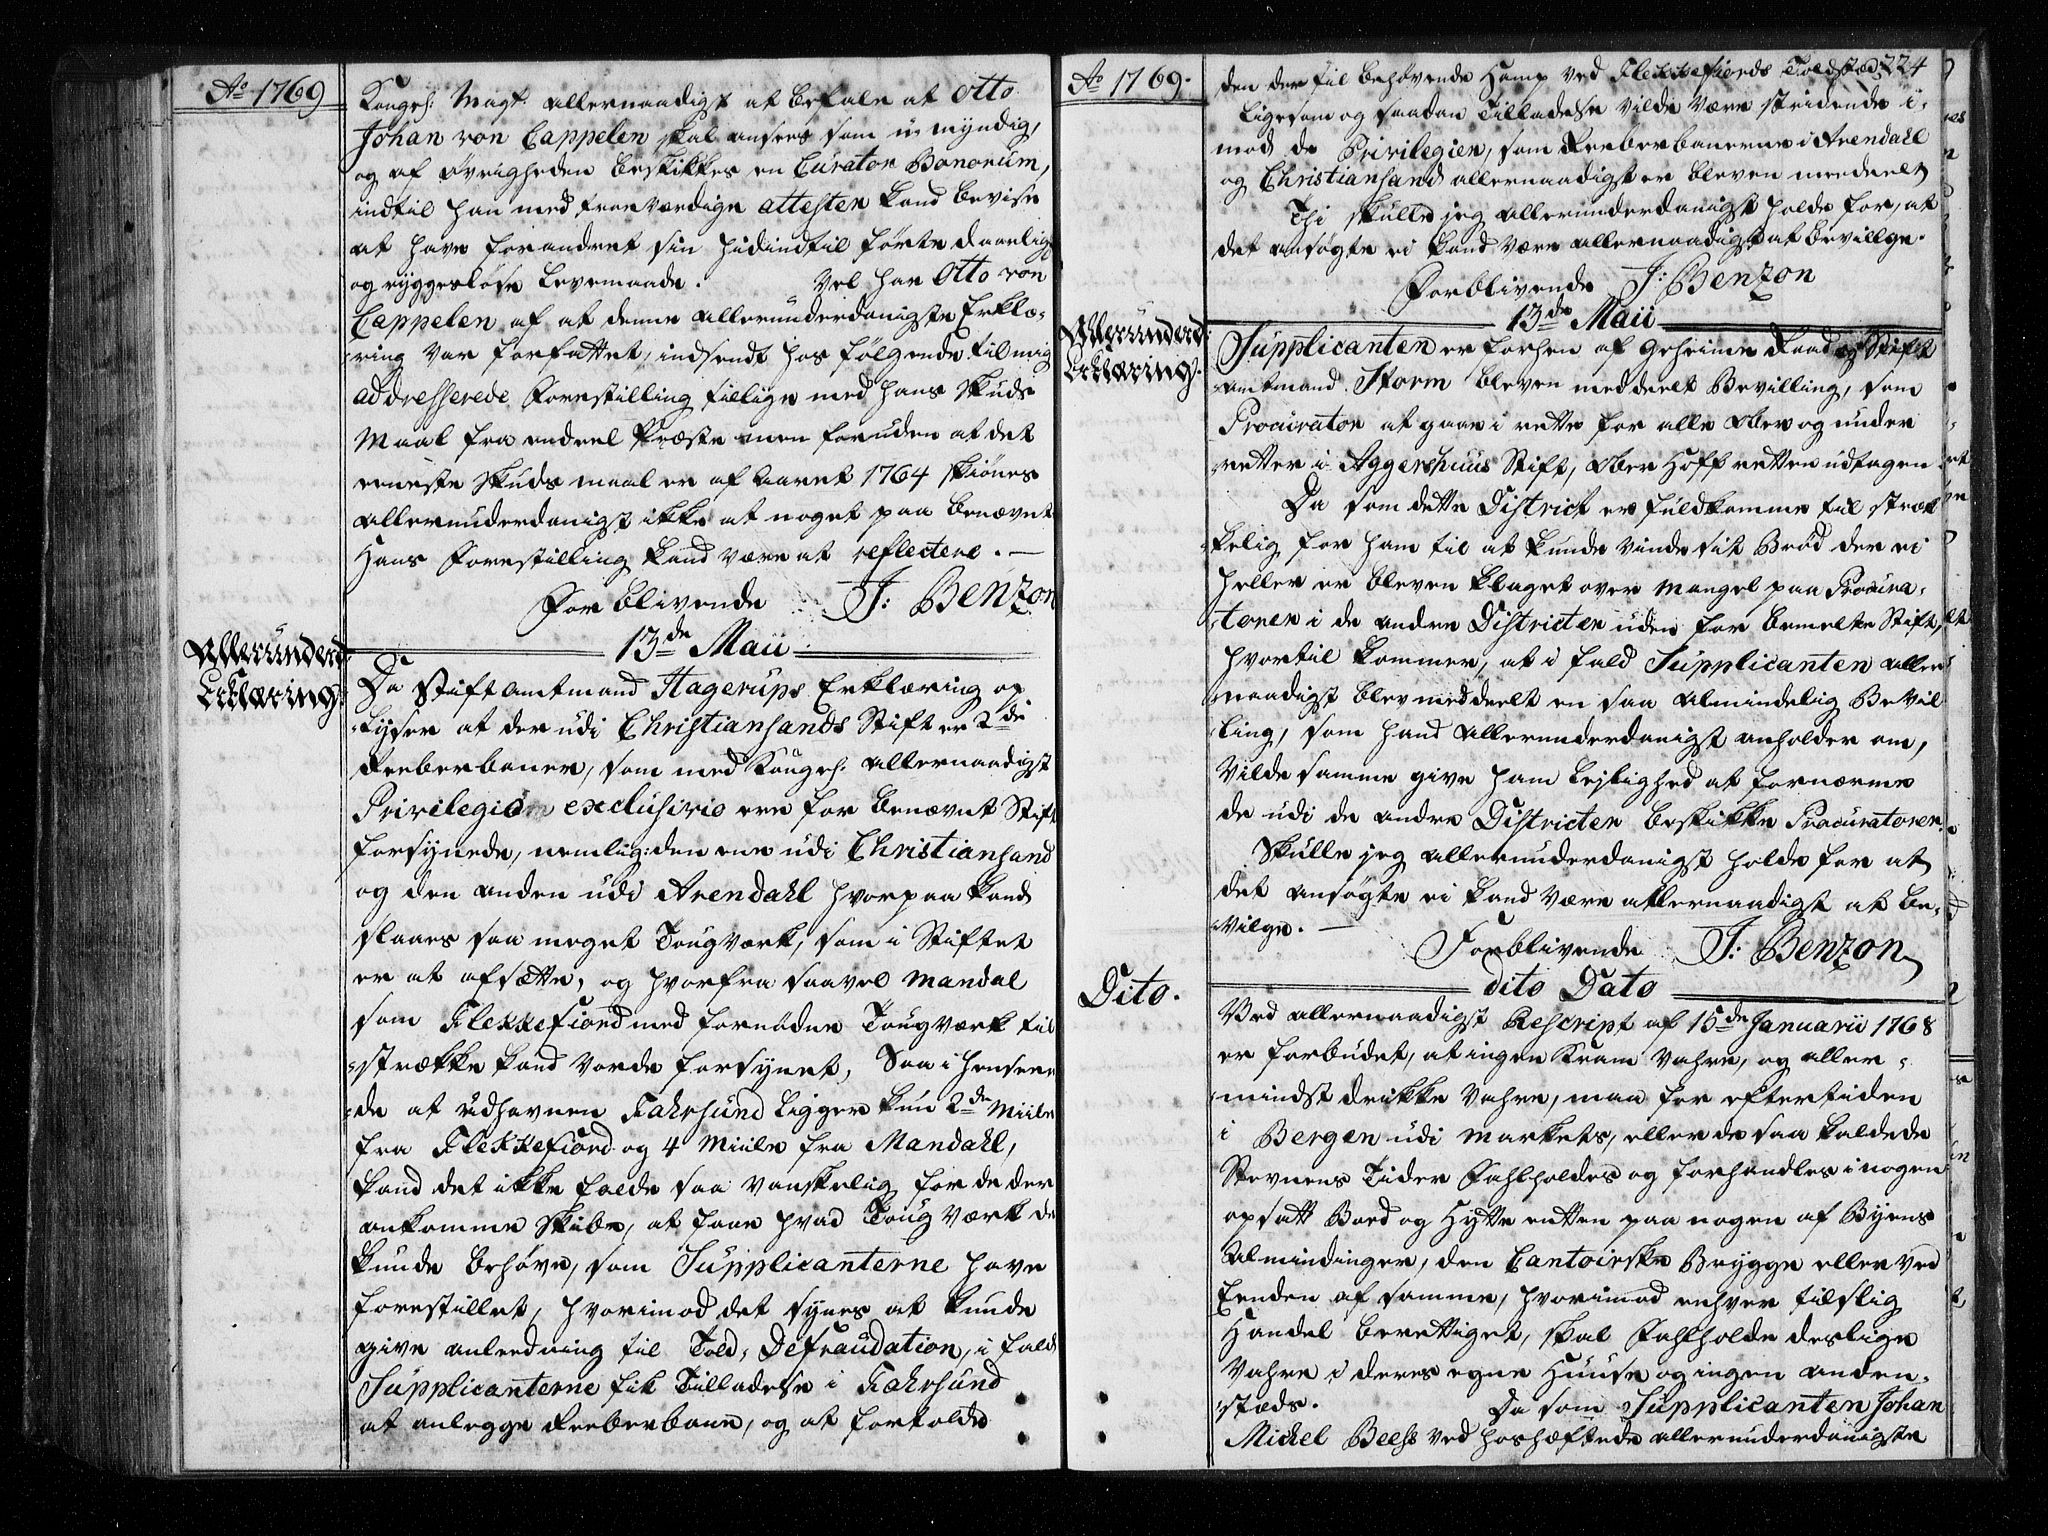 Ao 1769
Kongel: Magt. allernaadigst at befale at Otto
Johan von Cappelen skal ansees som u-myndig,
og af Øvrigheden beskikkes en Curator Bonorum,
indtil han med troeværdige attester kand bevise
at have forandret sin hidindtil førte daarlige
og ryggesløse Levemaade. Vel har Otto von
Cappelen af at denne allerunderdanigste Erklæ-
ring var forfattet, indsendt hos følgende til mig
addresserede Forestilling tillige med hans Skuds
Maal fra endeel Præste men foruden at det
eeneste Skuds maal er af Aaret 1764 skiønes
allerunderdanigst ikke at noget paa benævnte
Hans Forestilling kand være at reflectere. —
Forblivende J: Benzon
13de Maii
Allerunderd:
Erklæring:
Da Stiftamtmand Hagerups Erklæring op
lyser at der udi Christiansands Stift er 2de
Reeberbaner, som med Kongel: allernaadigst
Privilegio exclusivio ere for benævnte Stift
forsynede, nemlig: den ene udi Christiansand
og den anden udi Arendahl hvorpaa kand
slaaes saa meget Tougværk, som i Stiftet
er at afsætte, og hvorfra saavel Mandal
som Flekkefiord med fornøden Tougværk til
strække kand vorde forsynet, Saa i henseen
de at Udhavnen Fahrsund ligger kun 2de Miile
fra Flekkefiord og 4 Miile fra Mandahl,
kand det ikke falde saa vanskelig for de der
ankomme Skibe, at faae hvad Toug Værk de
kunde behøve, som Supplicanterne have
forestillet, hvorimod det synes at kunde
give anleedning til Told, Defraudation, i fald
Supplicanterne fik Tilladelse i Fahrsund
at anlegge Reeberbane, og at fortolde
Ao 1769.
den der til behøvende Hamp ved Flekkefiords Toldstæd, 224
Ligesom og saadan Tilladelse vilde være stridende i-
mod de Privilegier, som Reeberbanerne i Arendahl
og Christiansand allernaadigst er bleven meedeelt
Thi skulle jeg allerunderdanigst holde for, at
det ansøgte ei kand være allernaadigst at bevillge.
Forblivende J: Benzon
13de Maii
Allerunderd:
Erklæring:
Supplicanten er forhen af Geheime Raad og Stift
amtmand Storm bleven meddeelt Bevilling, som
Procurator at gaae i rette for alle Over og under
retter i Aggershuus Stift, Ober Hoff retten udtagen
Da som dette District er fuldkomme til stræk
kelig for ham til at kunde vinde sit Brød der ei
heller er bleven klaget over mangel paa Procura-
torer i de andre Districter uden for bemelte Stift,
hvortil kommer, at i fald Supplicanten aller
naadigst blev meddeelt en saa almindelig Bevil
ling, som hand allerunderdanigst anholder om,
vilde samme give ham Lejlighed at fornærme
de udi de andre Districter beskikke Procuratorer.
Skulle jeg allerunderdanigst holde for at
det ansøgte ei kand være allernaadigst at be-
vilge. —
Forblivende J: Benzon
dito Dato
Dito.
Ved allernaadigst Rescript af 15de Januarii 1768
er forbudet, at ingen Kram Vahre, og aller-
mindst drikke Vahre, maa for eftertiden
i Bergen udi Markets, eller de saa kaldede
Stevnens Tider Fahlholdes og forhandles i nogen
opsatt Boed og Hytte enten paa nogen af Byens
Almindinger, den Cantoirske Brygge eller ved
Eenden af samme, hvorimod enhver til slig
Handel berettiget, skal Fahlholde deslige
Vahre i deres egne Huuse og ingen anden-
stæds. Da som Supplicanten Johan
Michel Beehs ved hoshæftede allerunderdanigste